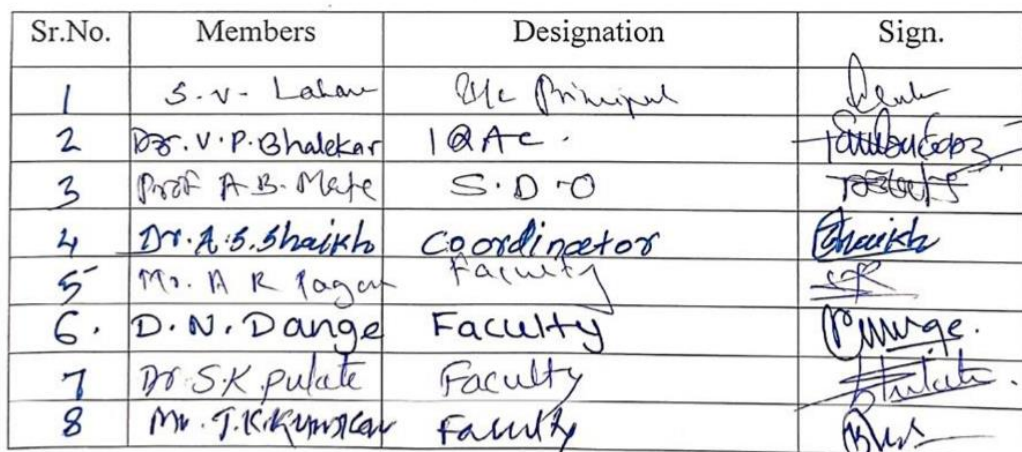 Sr.No. Members Designation Sign.
1 S. v. Lahane I/c Principal
2 Dr. V. P. Bhalekar IQAC.
3 Prof A. B. Mate S.D.O
4 Dr. A. S. Shaikh Coordinator Shaikh
5 Mr. A R Faculty
6. D. N. Dange Faculty
7 Dr S.K pulate Faculty
8 Mr. J.K. Faculty